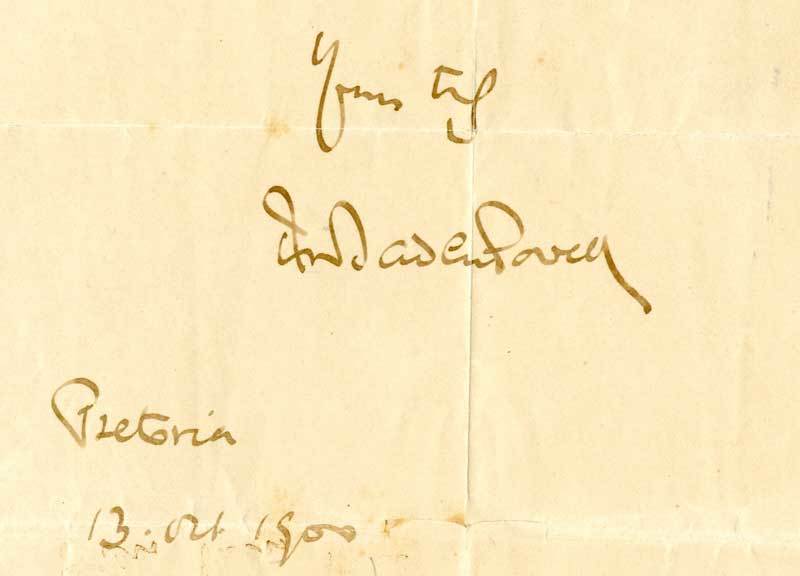 Yours try
R.S.S. Baden-Powell
Pretoria
13. Oct 1900